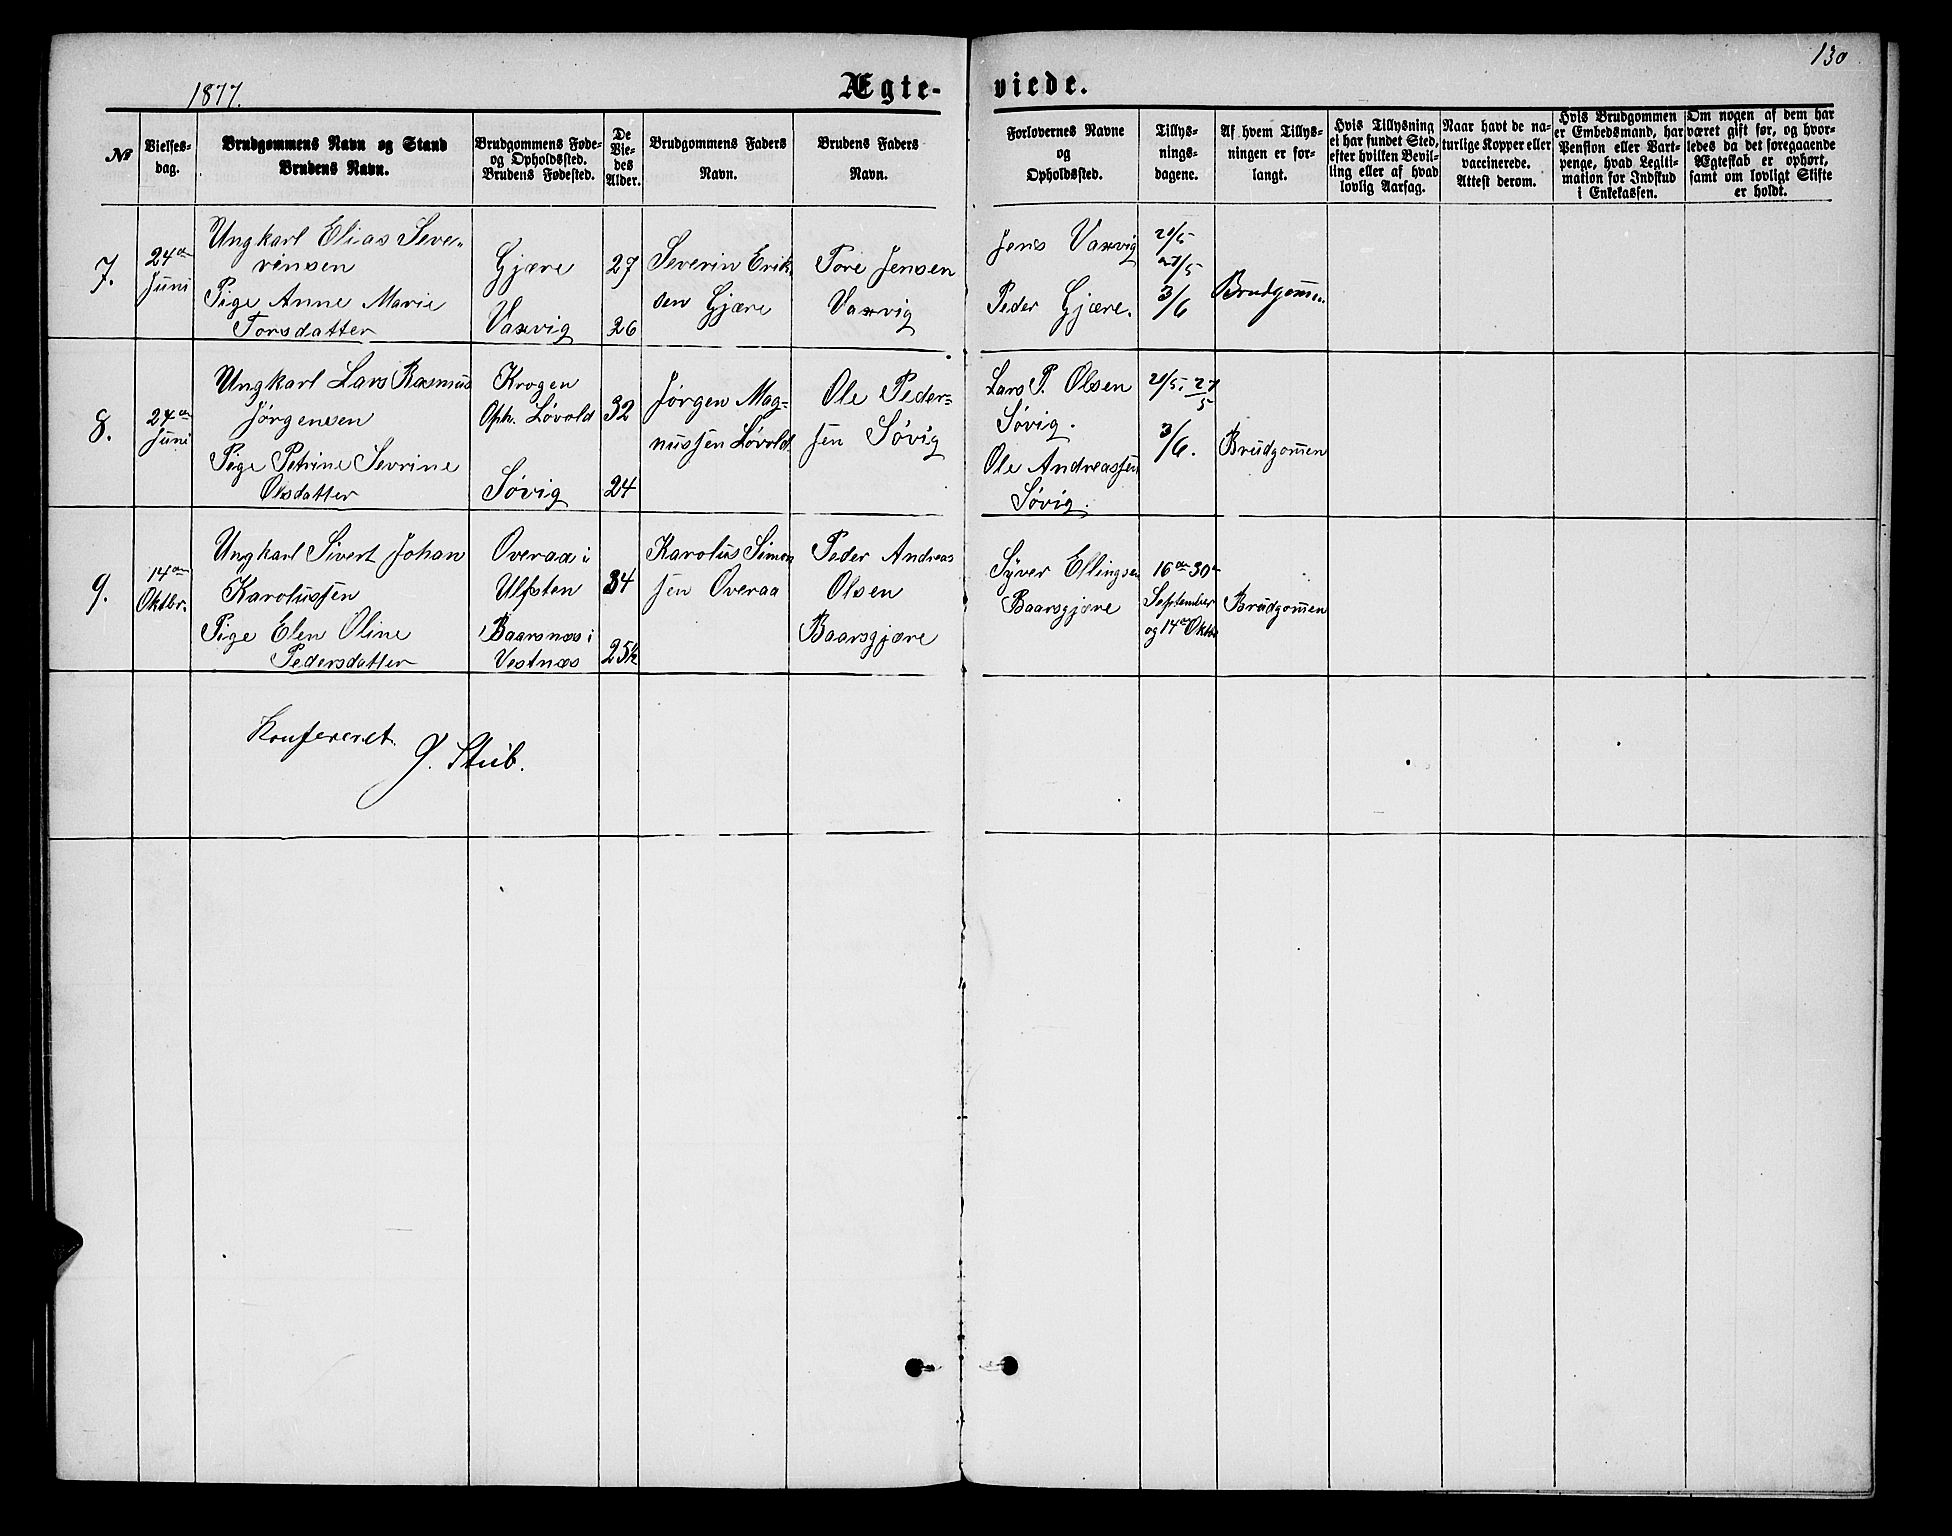 130
1877.
Ægte-viede.
No
Vielses-
dag.
Brudgommens Navn og Stand
Brudens Navn.
Brudgommens Føde-
og Opholdssted.
Brudens Fødested.
De
Vie-
des
Alder.
Brudgommens Faders
Navn.
Brudens Faders
Navn.
Forlovernes Navne
og
Opholdssted.
Tillys-
nings-
dagene.
Af hvem Tillys-
ningen er for-
langt.
Hvis Tillysning
ei har fundet Sted,
efter hvilken Bevil-
ling eller af hvad
lovlig Aarsag.
Naar havt de na-
turlige Kopper eller
vaccinerede.
Attest derom.
Hvis Brudgommen
er Embedsmand, har
Pension eller Vart-
penge, hvad Legiti-
mation for Indskud
i Enkekassen.
Om nogen af dem har
været gift før, og hvor-
ledes da det foregaaende
Ægteskab er ophørt,
samt om lovligt Skifte
er holdt.
7.
24de
Juni
Ungkarl Elias Seve-
rinsen
Pige Anne Marie
Torsdatter
Gjære
Vaxvig
27
26
Severin Erik-
sen Gjære
Tore Jensen
Vaxvig
Jens Vaxvig
Peder Gjære.
20/5
27/5
3/6
Brudgommen
8.
24de
Juni
Ungkarl Lars Rasmus
Jørgensen
Pige Petrine Sevrine
Olsdatter
Krogen
Oph. Løvold
Søvig
32
24
Jørgen Mag-
nussen Løvold
Ole Peder-
sen Søvig
Lars P. Olsen
Søvig.
Ole Andreassen
Søvig.
20/5. 27/5
3/6.
Brudgommen
9.
14de
Oktbr.
Ungkarl Sivert Johan
Karolussen
Pige Elen Oline
Pedersdatter
Overaa i
Ulfsten
Baarsnæs i
Vestnæs
34
25½
Karolus Simon
sen Overaa
Peder Andreas
Olsen
Baarsgjære
Syver Ellingsen
Baarsgjære
16de 30te
September
og 14de Oktbr
Brudgommen
Konfereret.
G. Stub.